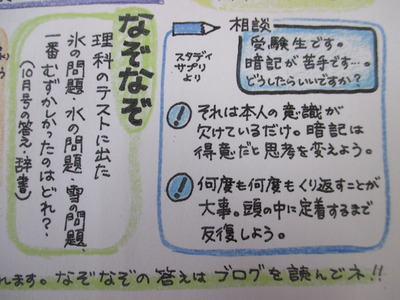 相談
受験生です。
暗記が苦手です…。
どうしたらいいですか?
スタディ
サプリ
より
! それは本人の意識が
欠けているだけ。暗記は
得意だと思考を変えよう。
! 何度も何度もくり返すことが
大事。頭の中に定着するまで
反復しよう。
なぞなぞ
理科のテストに出た
氷の問題・水の問題・雪の問題、
一番むずかしかったのはどれ?
(10月号の答え・辞書)
れます。なぞなぞの答えはブログを読んでネ!!